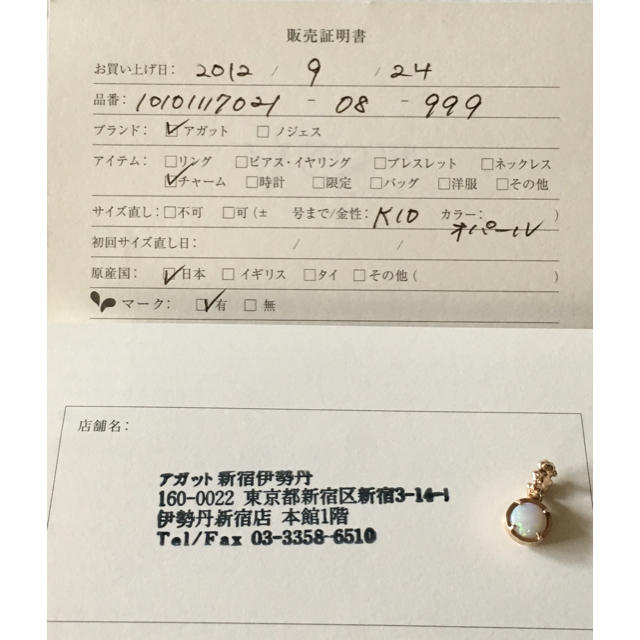 販売証明書
お買い上げ日: 2012 / 9 / 24
品番: 10101117021 - 08 - 999
ブランド: ☑アガット □ノジェス
アイテム: □リング □ピアス・イヤリング □ブレスレット □ネックレス
☑チャーム □時計 □限定 □バッグ □洋服 □その他
サイズ直し: □不可 □可(± 号まで/金性: K10 カラー: オパール )
初回サイズ直し日: / /
原産国: ☑日本 □イギリス □タイ □その他( )
マーク: ☑有 □無
店舗名:
アガット新宿伊勢丹
160-0022 東京都新宿区新宿3-14-1
伊勢丹新宿店 本館1階
Tel/Fax 03-3358-6510